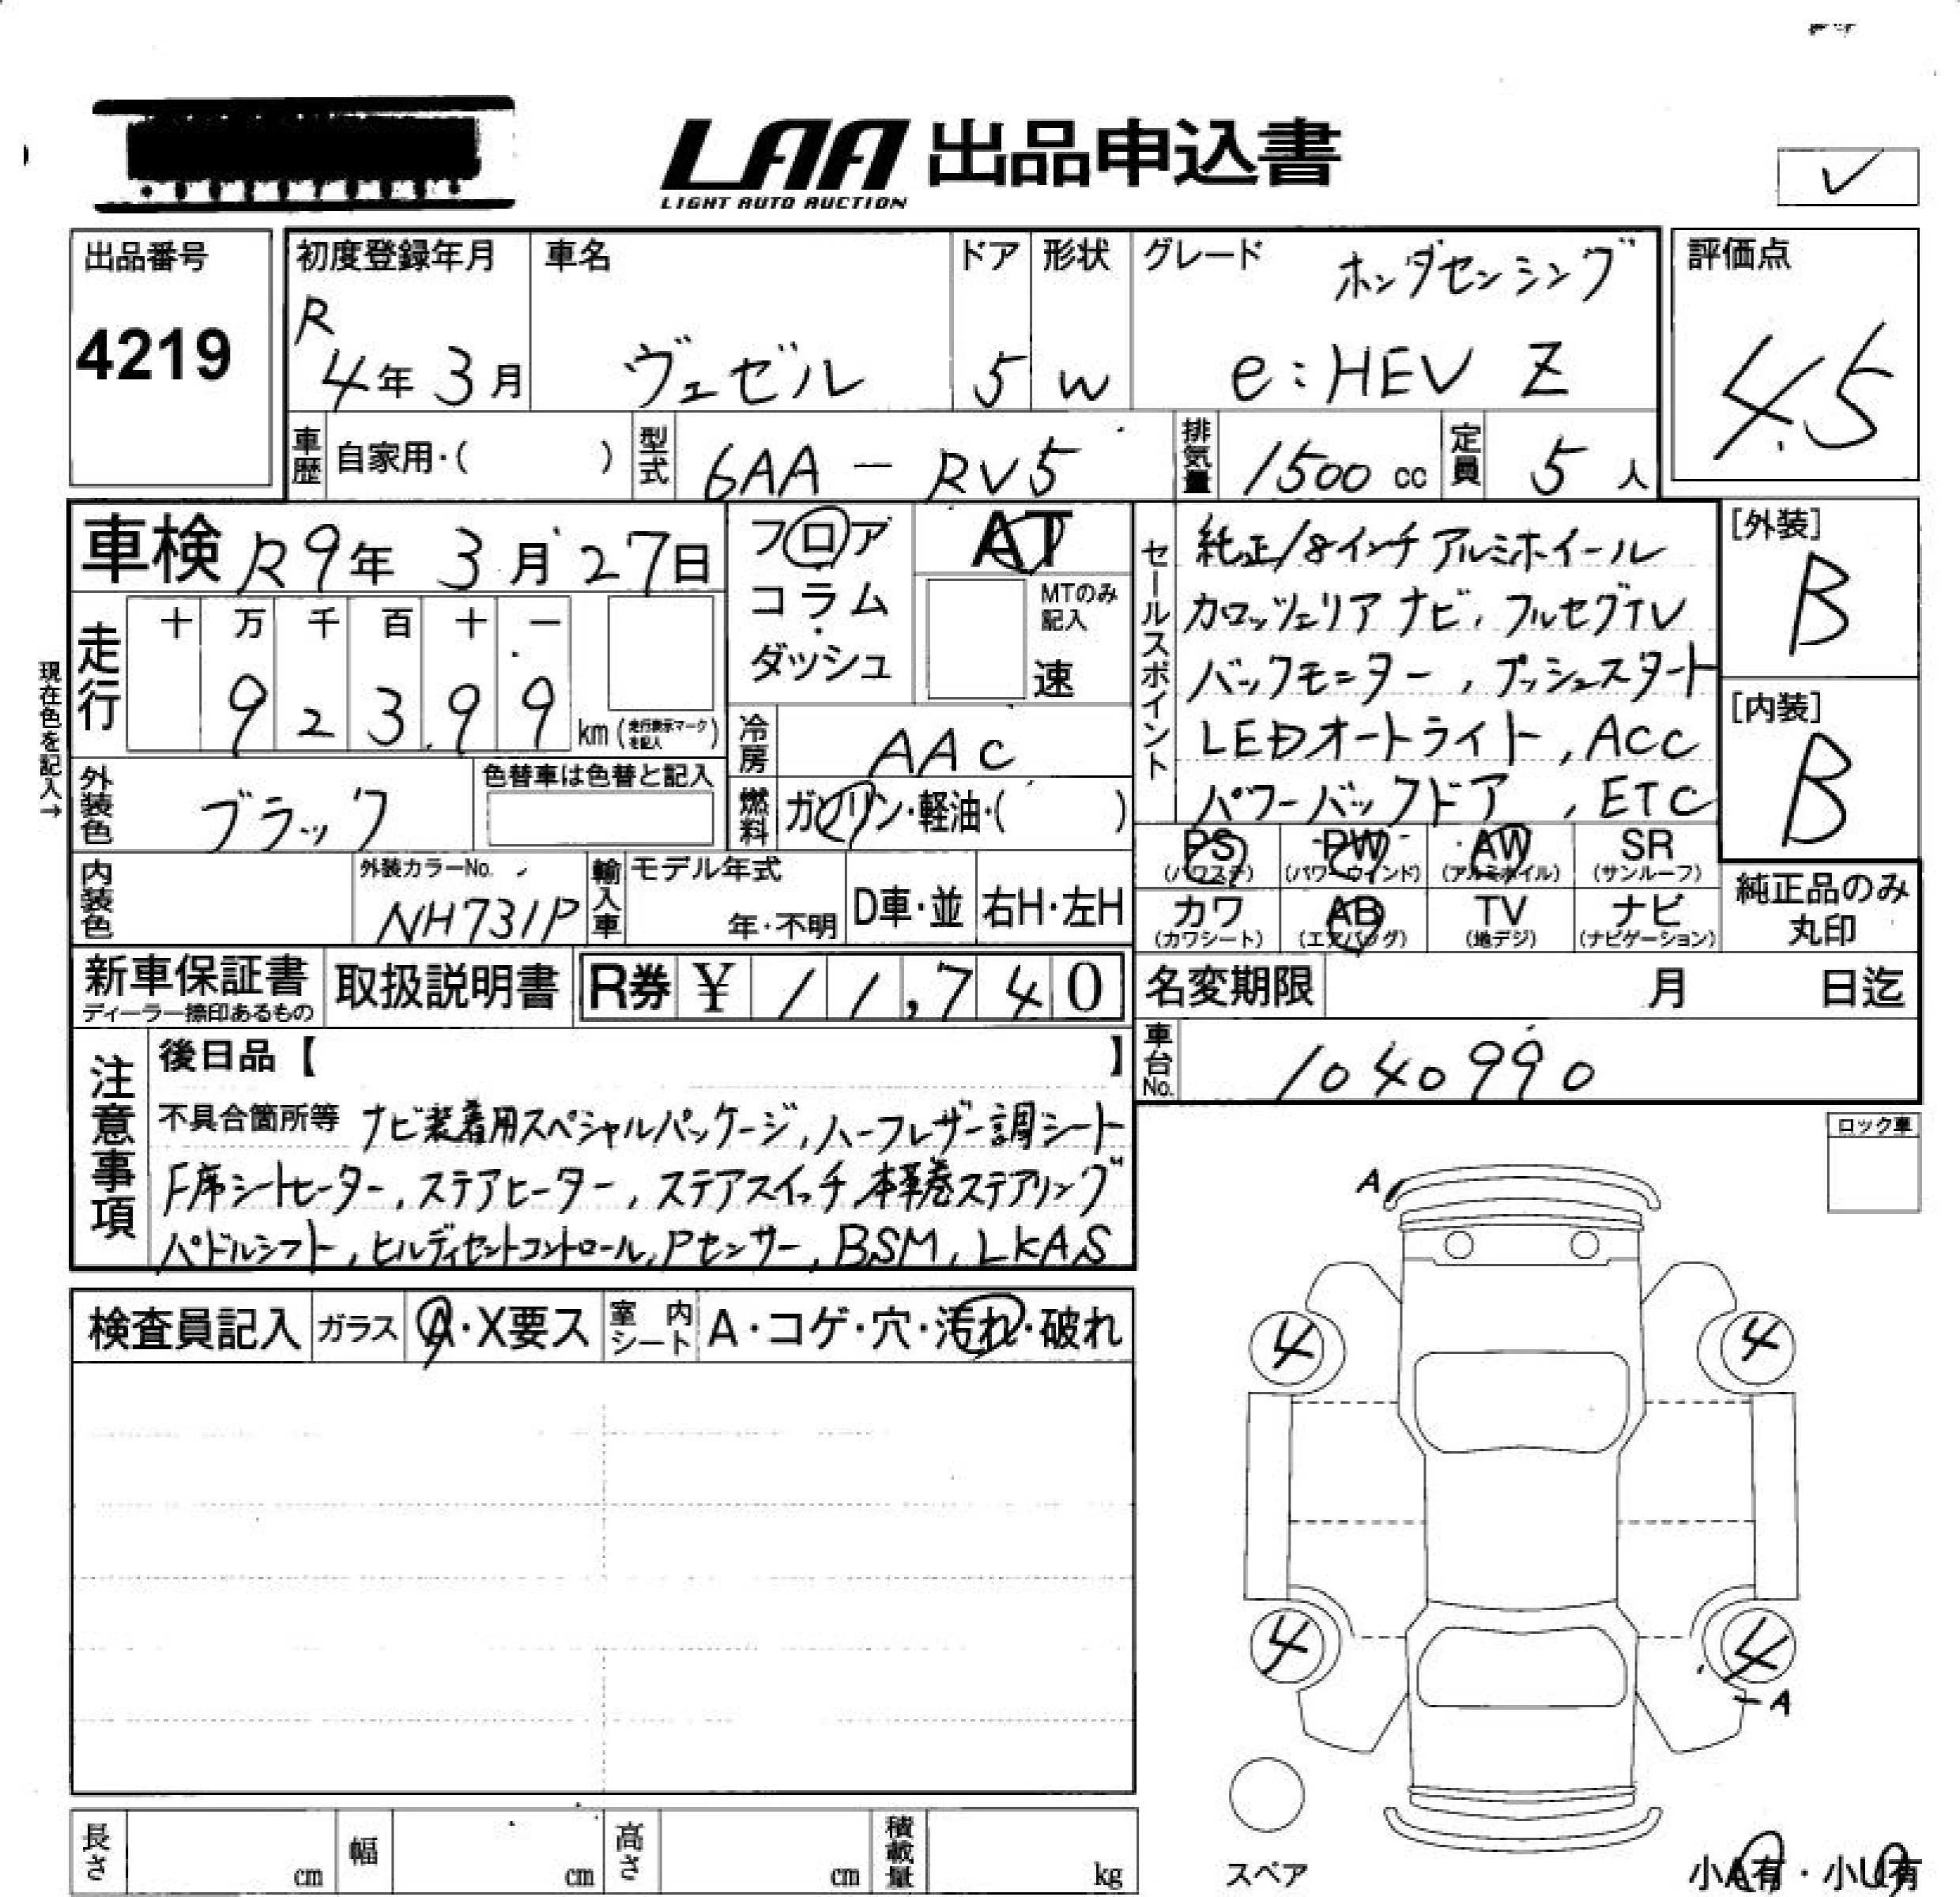 LAA 出品申込書
LIGHT AUTO AUCTION
✓
出品番号
4219
初度登録年月
R
4年 3月
車名
ヴェゼル
ドア
5
形状
W
グレード
ホンダセンシング
e:HEV Z
評価点
4.5
車歴 自家用・( )
型式 6AA-RV5
排気量 1500 cc
定員 5 人
車検 R9年 3月 27日
現在色を記入→
走行
十 万 千 百 十 一
9 2 3 9 9 km (走行表示マークを記入)
フロア
コラム
・
ダッシュ
AT
MTのみ
記入
速
冷房 AAC
燃料 ガソリン・軽油・( )
外装色 ブラック
色替車は色替と記入
内装色
外装カラーNo.
NH731P
輸入車
モデル年式
年・不明
D車・並
右H・左H
セールスポイント
純正18インチアルミホイール
カロッツェリアナビ, フルセグTV
バックモニター, プッシュスタート
LEDオートライト, ACC
パワーバックドア, ETC
[外装]
B
[内装]
B
PS
(パワステ)
PW
(パワーウィンド)
AW
(アルミホイル)
SR
(サンルーフ)
カワ
(カワシート)
AB
(エアバッグ)
TV
(地デジ)
ナビ
(ナビゲーション)
純正品のみ
丸印
新車保証書
ディーラー捺印あるもの
取扱説明書
R券 ¥ 11,740
名変期限 月 日迄
車台No. 1040990
注意事項
後日品【 】
不具合箇所等 ナビ装着用スペシャルパッケージ, ハーフレザー調シート
F席シートヒーター, ステアヒーター, ステアスイッチ, 本革巻ステアリング
パドルシフト, ヒルディセントコントロール, Pセンサー, BSM, LKAS
ロック車
検査員記入
ガラス A・X要ス
室内シート A・コゲ・穴・汚れ・破れ
A
4
4
4
4
A
スペア
長さ cm
幅 cm
高さ cm
積載量 kg
小A有・小U有